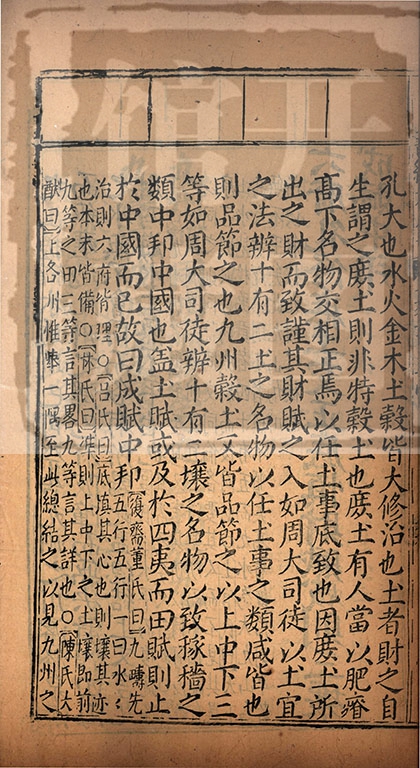 孔大也水火金木土穀皆大修治也土者財之自
生謂之庻土則非特穀土也庻土有人當以肥瘠
髙下名物交相正焉以任土事底致也因庻土所
出之財而致謹其財賦之入如周大司徒以土宜
之法辨十有二土之名物以任土事之類咸皆也
則品節之也九州穀土又皆品節之以上中下三
等如周大司徒辨十有二壤之名物以致稼穡之
類中邦中國也盖土賦或及於四夷而田賦則止
於中國而已故曰成賦中邦
復齋董氏曰九疇先
五行五行一曰水水
治則六府皆理○吕氏曰底慎其心也則壤其迹
也本末皆備○林氏曰準則上中下之土壤即前
九等之田三等言其畧九等言其詳也○陳氏大
猷曰上各州惟舉一隅至此總結之以見九州之